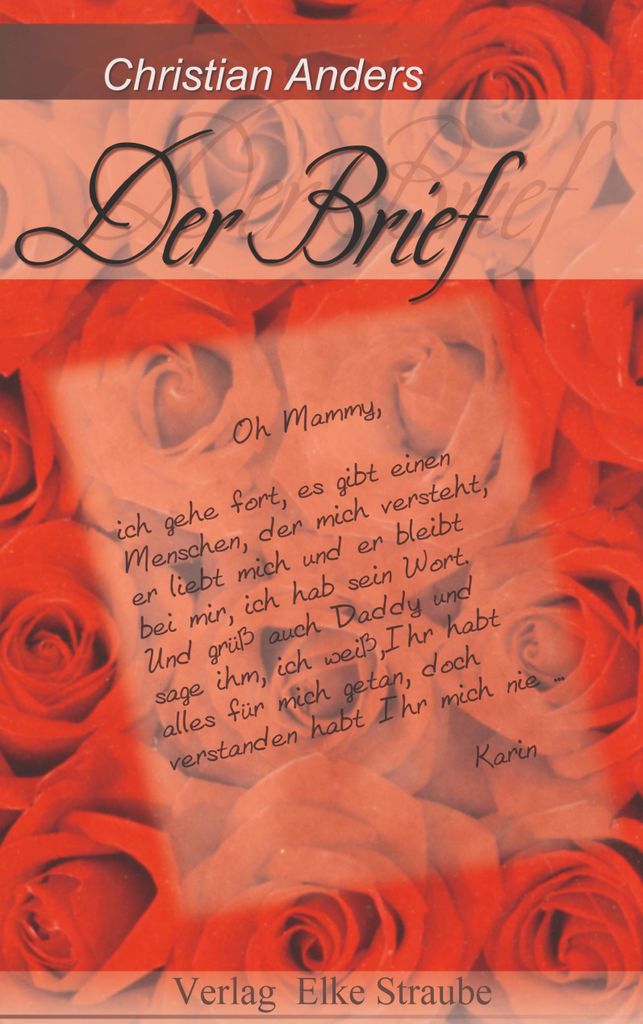 Christian Anders
Der Brief
Oh Mammy,
ich gehe fort, es gibt einen
Menschen, der mich versteht,
er liebt mich und er bleibt
bei mir, ich hab sein Wort.
Und grüß auch Daddy und
sage ihm, ich weiß,Ihr habt
alles für mich getan, doch
verstanden habt Ihr mich nie ...
Karin
Verlag Elke Straube